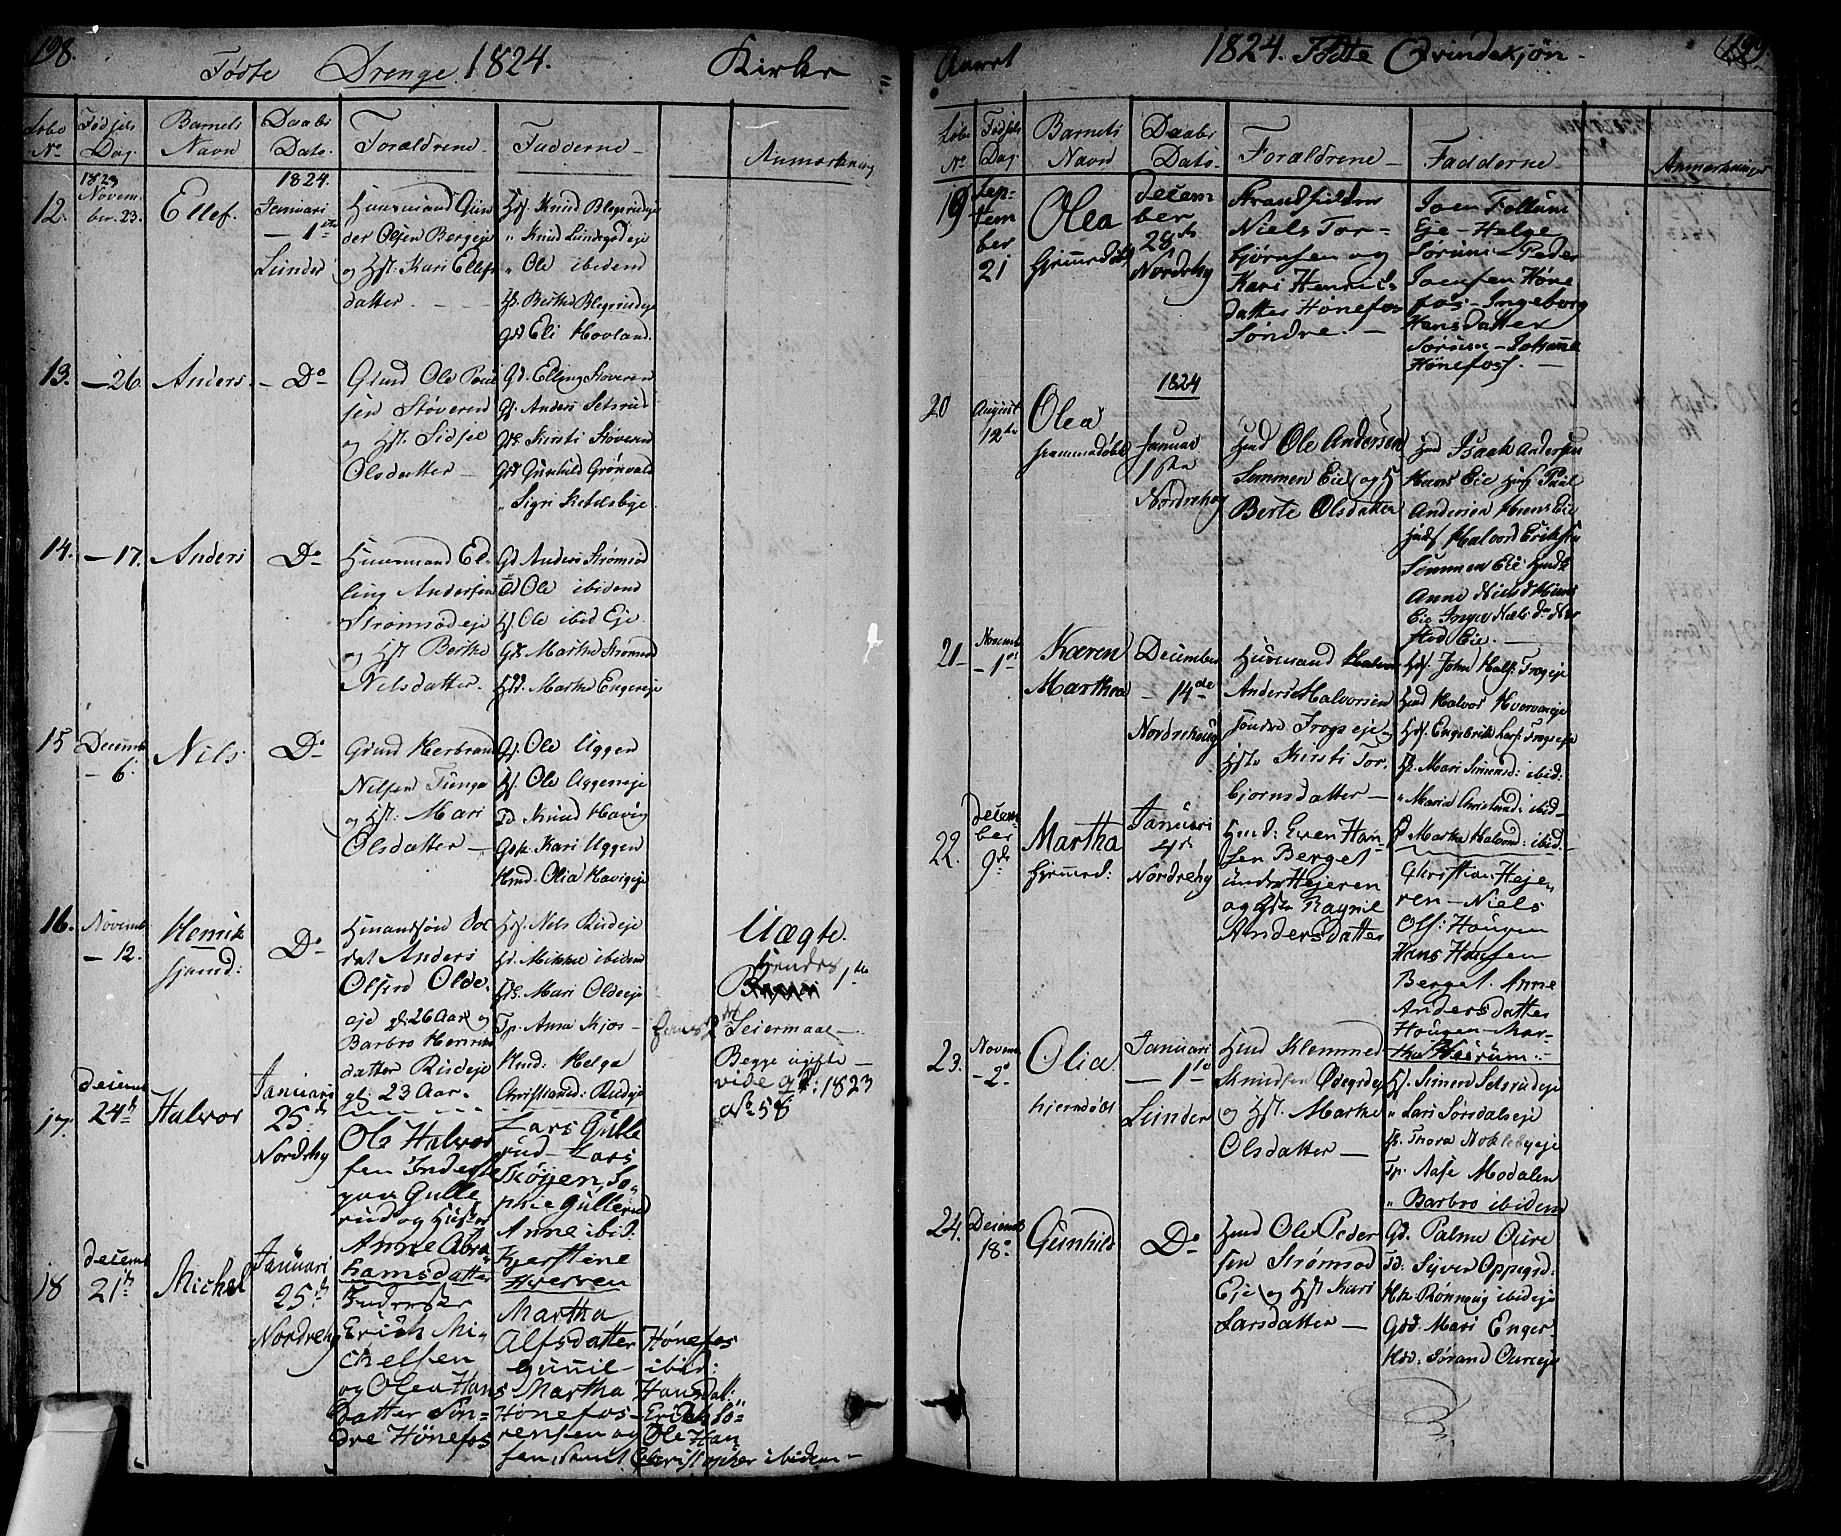 198.
Fødte Drenge 1824. Kirke
Løbe No
Fødsels Dag
Barnets Navn
Daabs Dato
Forældrene
Fadderne
Anmærkning
12.
1823 Novem-
ber 23.
Ellef.
1824.
Januari
1ste
Lunder
Huusmand Gun
der Olsen Bergeje
og Hst: Kari Ellefs
datter
Hsf. Knud Blegsrudeje
" Knud Lundegrdeje
" Ole ibidend
Hs. Berthe Blegsrudeje
Gd. Eli Hovland.
13.
—26.
Anders.
Do
Gmd Ole Poul
sen Støveren
og Hst. Sidsel
Olsdatter
Gd. Elling Støveren
Gf. Anders Setsrud
Gk. Kirsti Støveren
Gd. Gunhild Grønvold
" Sigri Ketelsbye
14.
—17.
Anders
Do
Huusmand El-
ling Andersen
Strømsodeje
og Hst Berthe
Nilsdatter.
Gd Anders Strømsod
Ole ibidend
Hf. Ole ibid Eje
Gk. Marthe Strømsod
Hd. Marthe Engereje
15
Decemb
— 6.
Nils
Do
Gmd Herbrand
Nilsen Tunga
og Hst: Mari
Olsdatter
Gf. Ole Uggen
Hf. Ole Uggeneje
Knud Havig
Gk. Kari Uggen
Hmd. Olia Havigeje
16.
Novemb
— 12.
Henrik
hjemd:
Do
Anders
Olsen Olde-
eje gl. 26 Aar og
Barbro Henriks
datter Risdeje
gl: 23 Aar.
Hsf. Nils Risdeje
Mikkel ibidem
Hk. Mari Oldeeje
Tp. Anna Kjos
Hmd: Helge
Christiansd: Risdeje
Uægte.
hendes 1te
hans 2det Leiermaal
Begge ugifte
vide 1823
No 58
17.
decemb
24de
Halvor
Januari
25de
Nordrehg
Ole Halvor
sen Inderste
paa Gulle
rud og Hustru
Anne Abra
hamsdatter
Lars Gulle
rud—Lars
Skøyen, So-
phie Gullerud
Anne ibid:
Kjerstine
Hverven
18
decemb
21de
Michel
Januari
25de
Nordrehg
Inderste
Erich Mi-
chelsen
og Olea Hans
datter Søn-
dre Hønefos
Martha
Alfsdatter Hønefos
Gunil— ibid:
Martha Hansdatt:
Hønefos—Erich Sö-
rensen og Ole Han-
sen, samt Christopher ibidem
Aaret 1824. Fødte Qvindekjøn.
199.
Løbe No
Fødsels Dag
Barnets Navn
Daabs Dato
Forældrene
Fadderne
Anmærkninger
19
Sep-
tem
ber
21
Olea
hjemmedøbt
decem
ber
28de
Nordrehg
Strandsidder
Niels Tor-
bjørnsen og
Kari Henrics
datter Hønefos
Søndre.
Joen Follum
Eje—Helge
Sörum—Peder
Joensen Høne
fos—Ingeborg
Hansdatter
Sörum—Johanne
Hönefoss.
20
August
12te
Olea
hjemmedøbt
1824
Januar
1ste
Nordrehoug
Hmd Ole Andersen
Semmen Eie og H
Berte Olsdatter
Hmd Isaak Andersen
Hans Eie Paal
Andersen Mrens Eie
Halvord Eriksen
Semmen Eie
Anne Nielsd
Eie Inger Niels d
Eie.
21
Novemb
— 1ste
Karen
Marthea
December
— 14de
Nordrehoug
Huusmand
Anders Halvorsen
søndre Frogs eje
Hste Kirsti Tor-
bjornsdatter
Hsf. John Half: Frogeje
Hmd Halvor Hverveneje
Hsf. Engebrik Lars: Frogseje
Hk. Mari Simensd: ibid:
" Maria Christiansd: ibid
Marthe Halvorsd: ibid
22.
decem
ber
9de
Martha
hjemmed:
Januari
4de
Nordrehg
Hmd: Even Han-
sen Berget
under Hejeren
og Hste Ragnil
Andersdatter
Christian Heje-
ren—Niels
Ols: Hougen
Hans Hansen
Berget. Anne
Andersdatter
Hougen—Mar-
tha Veirum.
23.
Novemb
— 2d
Olia
hjemdøbt
Januari
— 1te
Lunder
Hmd Klemmed
Knudsen Ødegrdeje
og Hst. Marthe
Olsdatter
Hf. Simen Setsrudeje
" Lars Sørsdalseje
Hk. Thora Noklebyeje
Tp. Aase Modalen
" Barbro ibidem
24.
Decemb
18.
Gunhild
Do
Hmd Ole Peder
sen Strømsod
Eje og Hst Kari
Larsdatter
Gd. Palme Oure
Td. Syver Oppegrd:
Hk. Rønnaug ibideje
Gd. Mari Enger
Hd. Jørand Oureeje